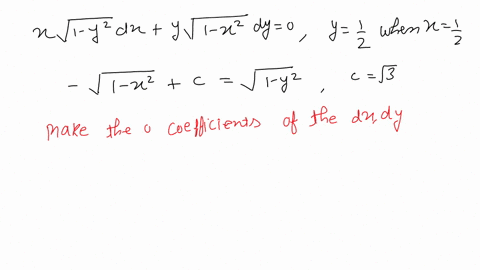 x√(1-y²) dx + y√(1-x²) dy = 0, y = 1/2 when x = 1/2
- √(1-x²) + c = √(1-y²), c = √3
Make the 0 coefficients of the dx, dy